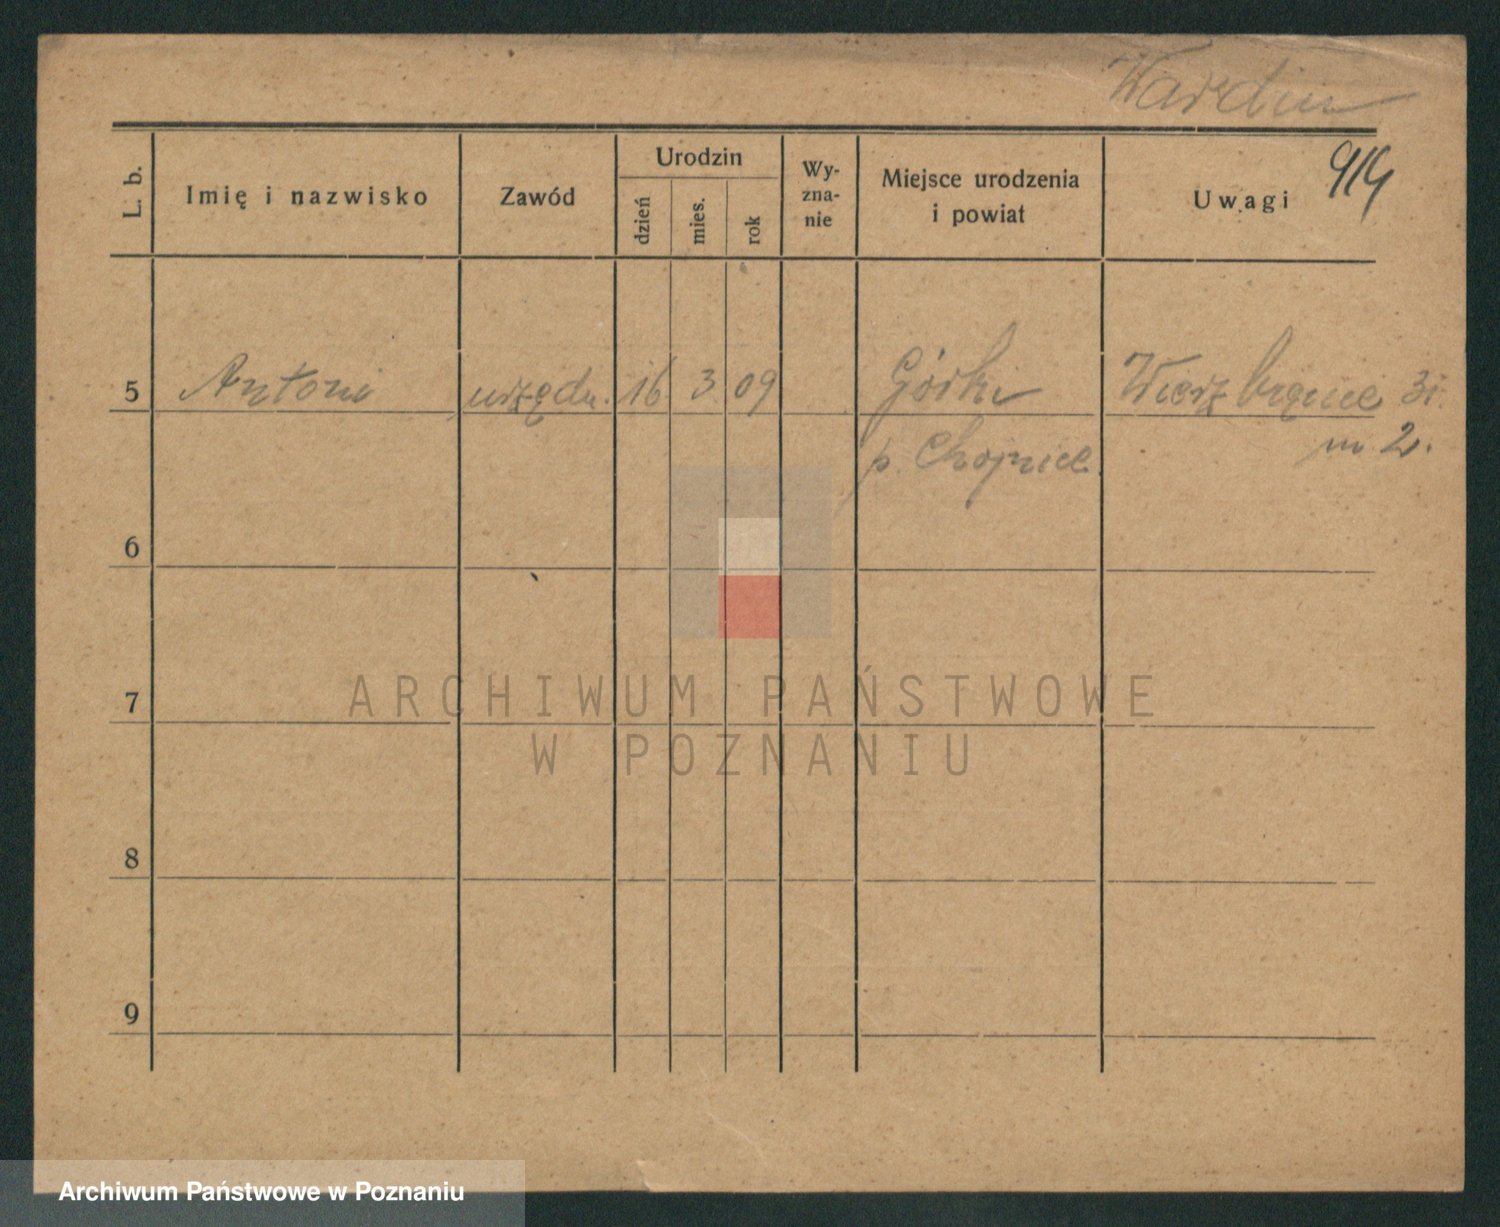 Wardin
914
L. b.
Imię i nazwisko
Zawód
Urodzin
dzień
mies.
rok
Wy-
zna-
nie
Miejsce urodzenia
i powiat
Uwagi
5 Antoni urzędn. 16 3 09 Górki Wierzbięcice
p. Chojnice m 2.
6
7
8
9
ARCHIWUM PAŃSTWOWE
W POZNANIU
Archiwum Państwowe w Poznaniu